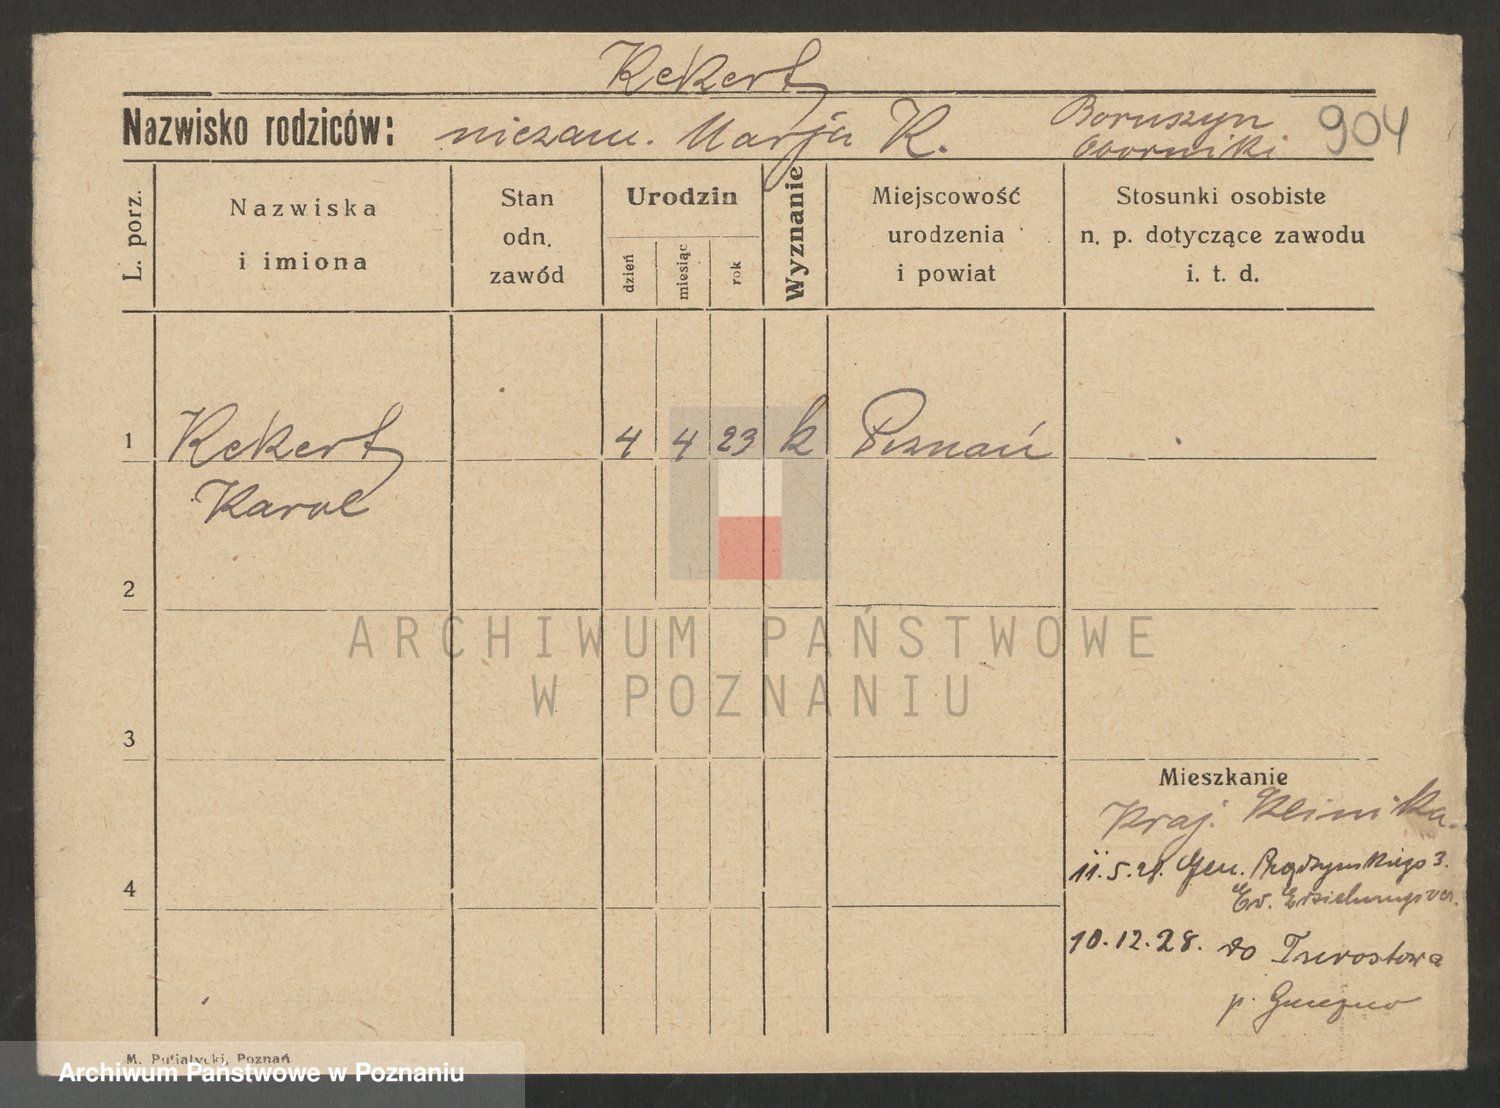 Rekert
Nazwisko rodziców: niezam. Marja R. Boruszyn
Oborniki
904
L. porz.
Nazwiska
i imiona
Stan
odn.
zawód
Urodzin
dzień
miesiąc
rok
Wyznanie
Miejscowość
urodzenia
i powiat
Stosunki osobiste
n. p. dotyczące zawodu
i. t. d.
1 Rekert 4 4 23 k Poznań
Karol
2
3
4
Mieszkanie
Kraj. Klinika
11.5.21. Gen. Prądzyńskiego 3.
Ev.
10.12.28. do
p. Gniezno
M. Putiatycki, Poznań
ARCHIWUM PAŃSTWOWE
W POZNANIU
Archiwum Państwowe w Poznaniu